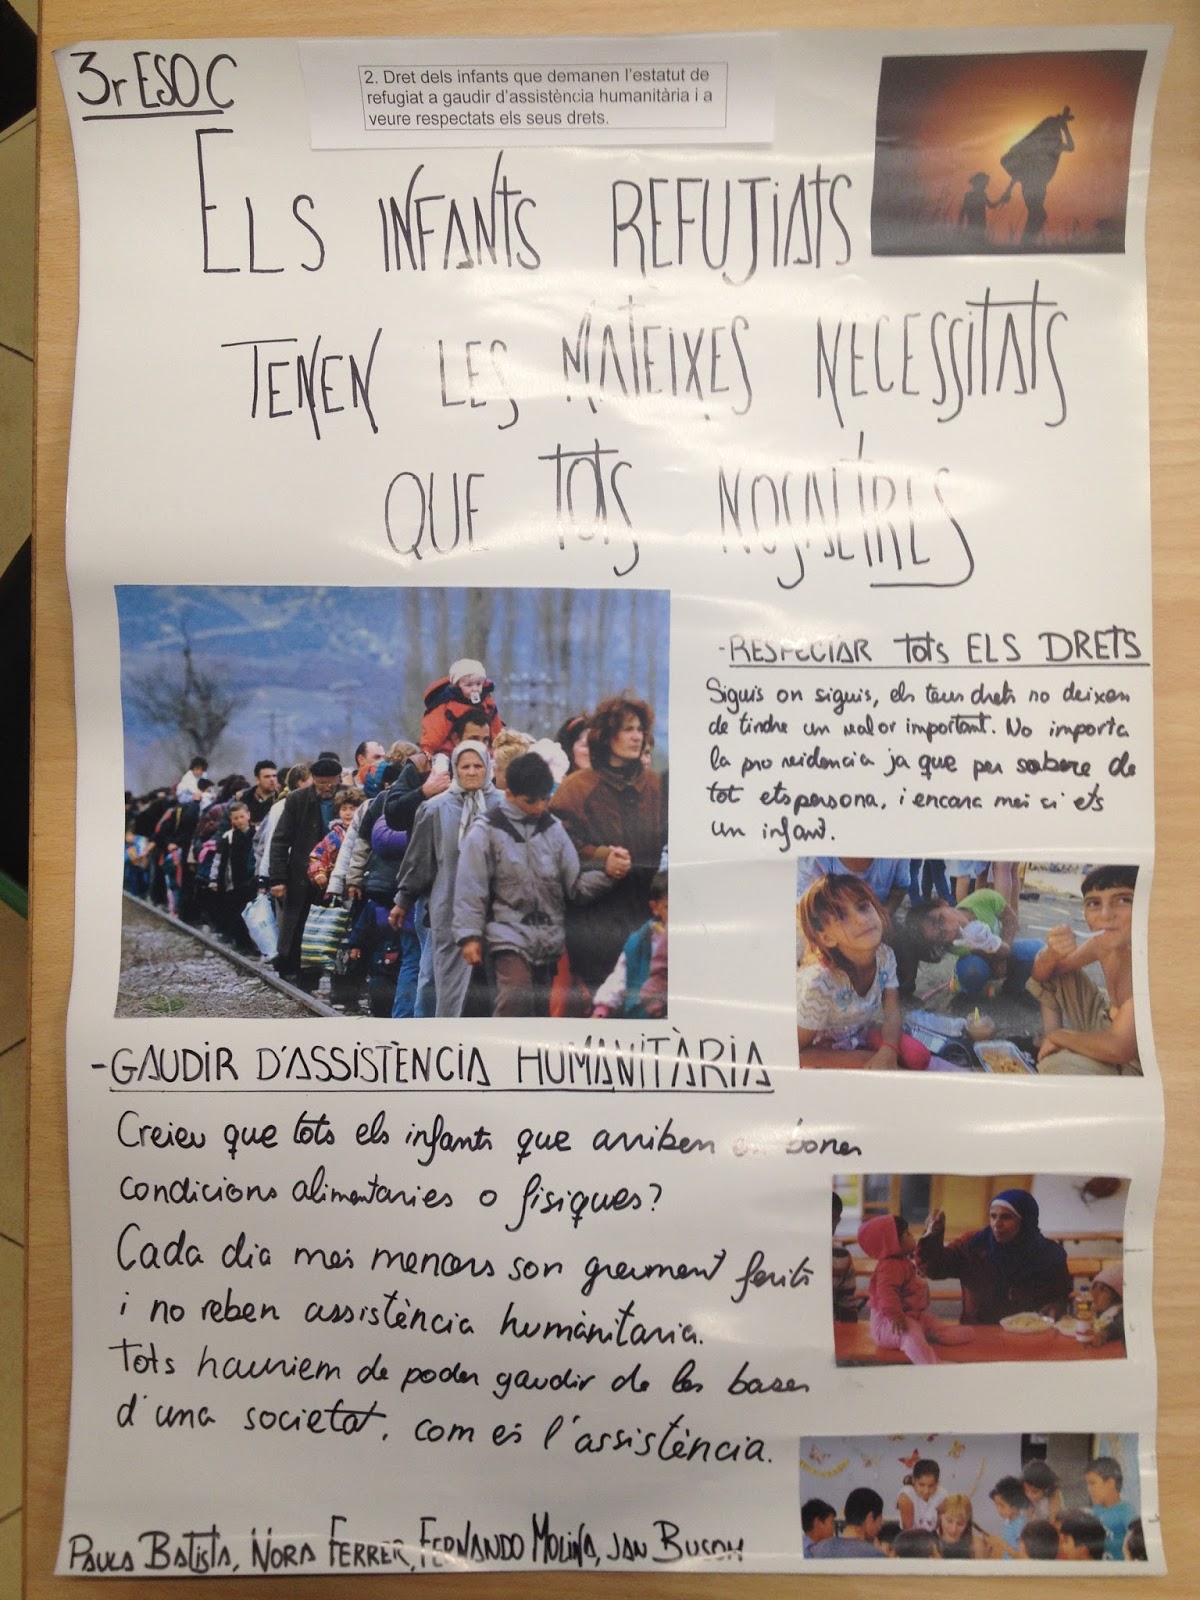 3r ESO C
2. Dret dels infants que demanen l'estatut de
refugiat a gaudir d'assistència humanitària i a
veure respectats els seus drets.
ELS INFANTS REFUJIATS
TENEN LES MATEIXES NECESSITATS
QUE TOTS NOSALTRES
-RESPECTAR TOTS ELS DRETS
Siguis on siguis, els teus drets no deixen
de tindre un valor important. No importa
la providencia ja que per sobre de
tot ets persona, i encara més si ets
un infant.
-GAUDIR D'ASSISTÈNCIA HUMANITÀRIA
Creieu que tots els infants que arriben en bones
condicions alimentaries o físiques?
Cada dia més menors son greument ferits
i no reben assistència humànitaria.
Tots hauriem de poder gaudir de les bases
d'una societat, com és l'assistència.
PAULA BATISTA, NORA FERRER, FERNANDO MOLINA, JAN BUSOM